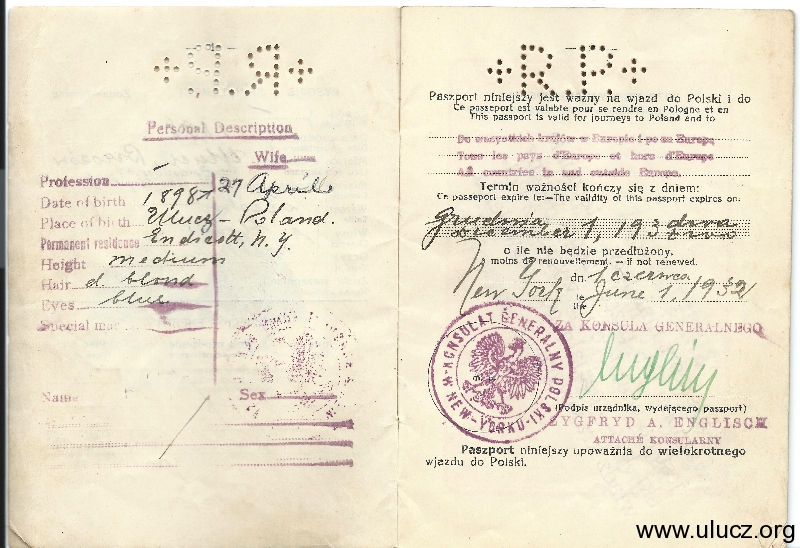 +P.R+
Personal Description
Wife
Profession
Date of birth 1898 27 Aprile
Place of birth Ulucz - Poland.
Permanent residence Endicott, N.Y.
Height medium
Hair d. blond
Eyes blue
Special mar
Name
Sex
+R.P.+
Paszport niniejszy jest ważny na wjazd do Polski i do
Ce passeport est valable pour se rendre en Pologne et en
This passport is valid for journeys to Poland and to
Do wszystkich krajów w Europie i poza Europą
Tous les pays d'Europe et hors d'Europe
All countries in and outside Europe.
Termin ważności kończy się z dniem:
Ce passeport expire le:—The validity of this passport expires on:
grudnia
December 1, 193
o ile nie będzie przedłużony.
moins de renouvellement. — if not renewed.
dn. 1 czerwca
New York le June 1, 1932
the
ZA KONSULA GENERALNEGO
KONSULAT GENERALNY POLSKI W NEW-YORKU
(Podpis urzędnika, wydającego paszport)
ZYGFRYD A. ENGLISCH
ATTACHÉ KONSULARNY
Paszport niniejszy upoważnia do wielokrotnego
wjazdu do Polski.
www.ulucz.org